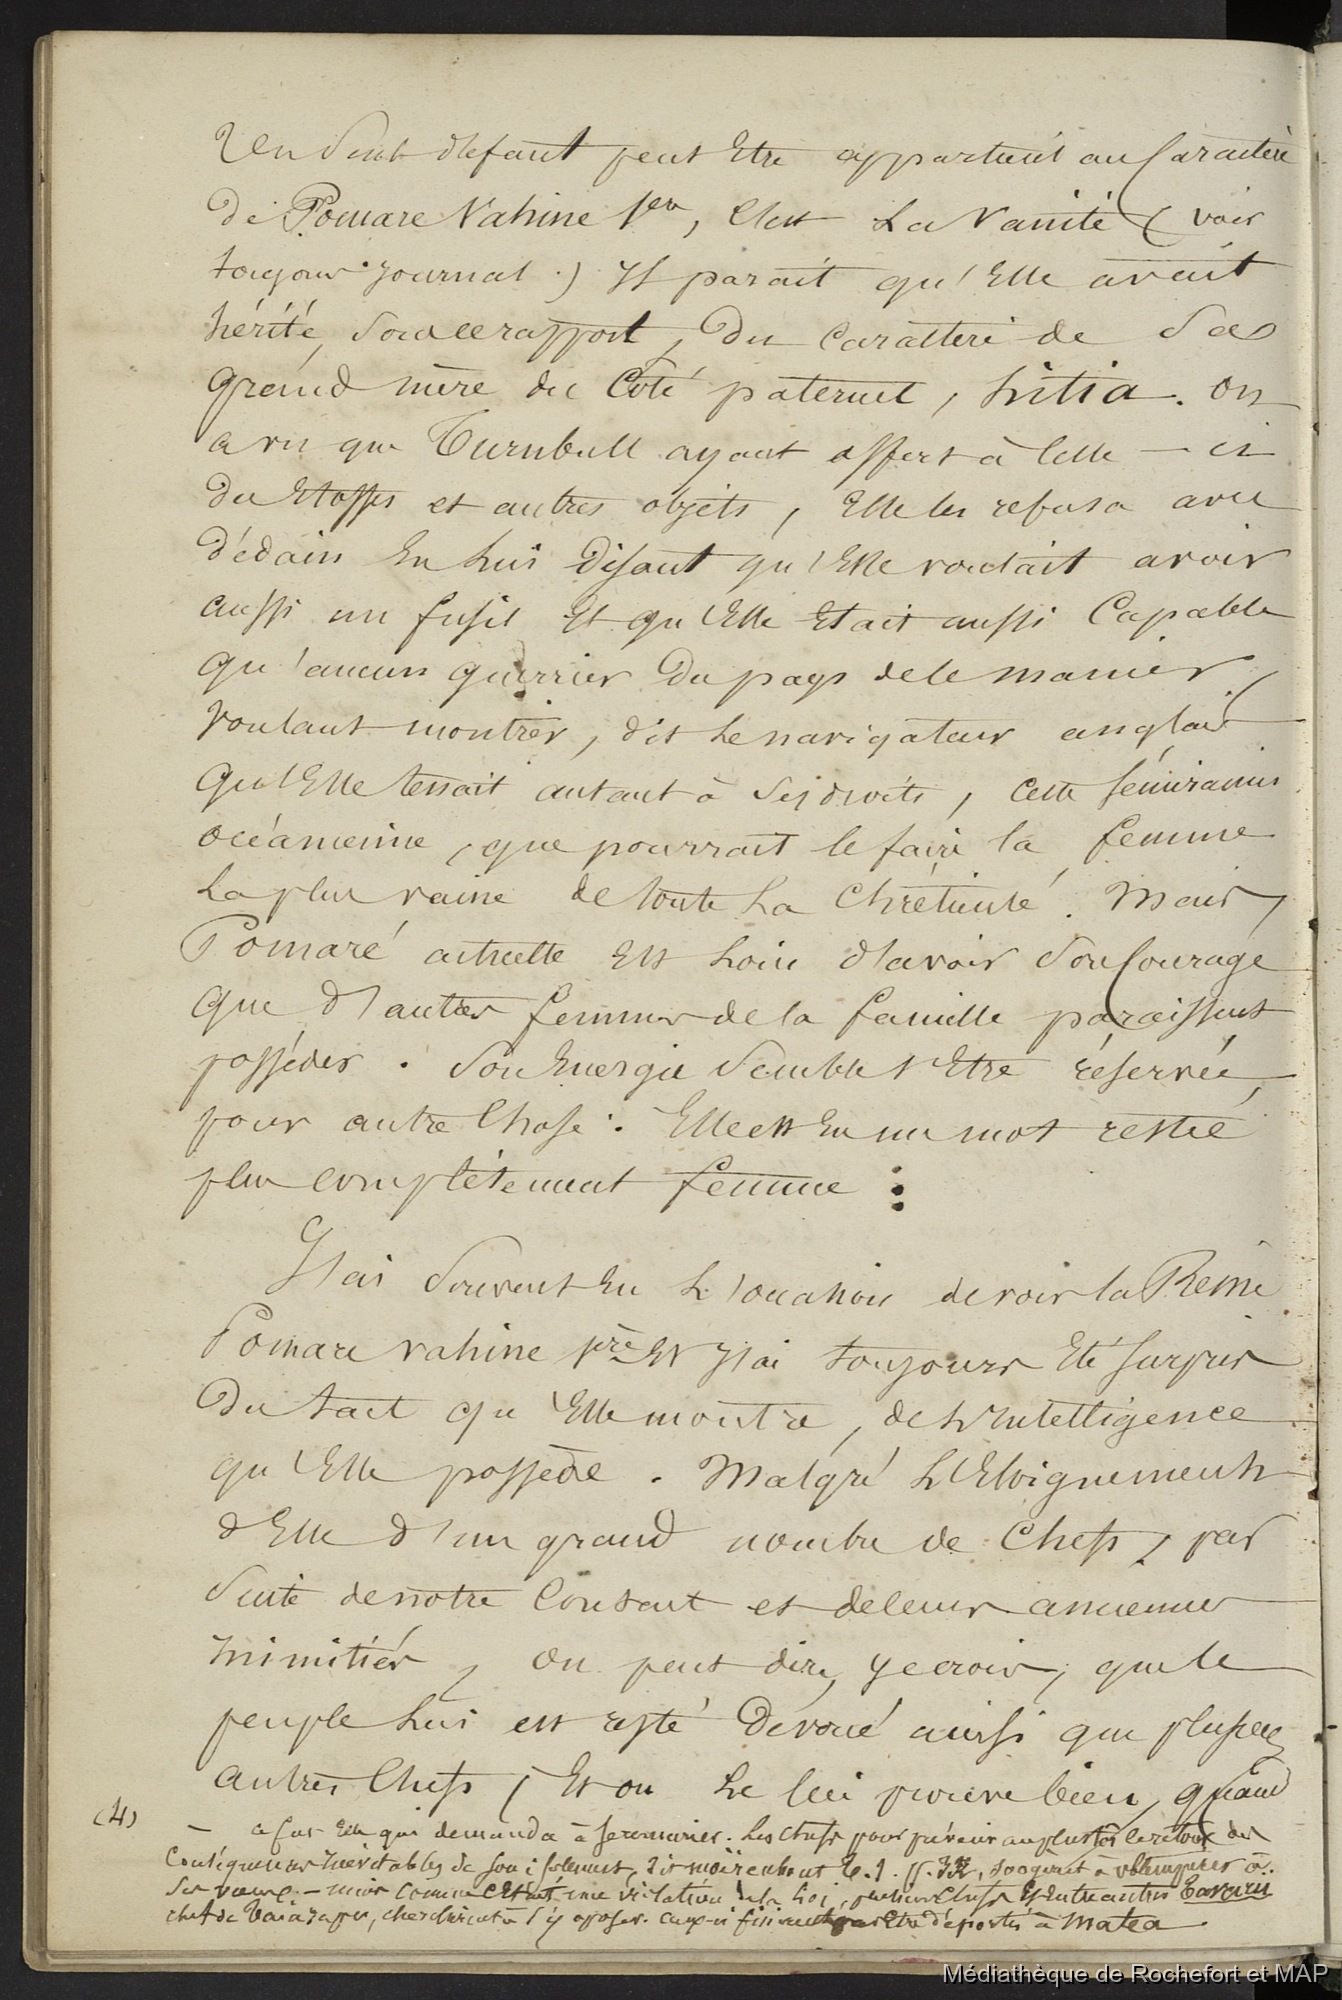 Un seul défaut peut Etre appartient au Caractère
de Pomare Vahine 1ere, C'est La Vanité (voir
toujours journal.) Il parait qu'Elle avait
hérité, sous ce rapport, Du Caractère de Sa
grand mère du Côté paternel, hitia. On
a vu que Turnbull ayant offert à Celle-ci
Des Etoffes et autres objets, Elle les refusa avec
dédain En Lui Disant qu'Elle voulait avoir
aussi un fusil Et qu'Elle Etait aussi Capable
qu'aucun guerrier Du pays de le manier,
voulant montrer, dit Le navigateur anglais
Qu'Elle tenait autant à Ses droits, Cette Sémiramis
océanienne, que pourrait le faire la femme
La plus vaine de toute La Chrétienté. Mais,
Pomaré actuelle Est Loin d'avoir Son Courage
Que d'autres femmes de la famille paraissent
posséder. Son Energie Semble s'Etre réservée,
pour autre Chose. Elle est En un mot restée
plus complètement femme :
J'ai Souvent Eu L'occasion de voir la Reine
Pomare vahine 1ère Et J'ai toujours Eté Surpris
Du tact qu'Elle montre, de L'Intelligence
qu'Elle possède. Malgré L'Eloignement
d'Elle d'un grand nombre de Chefs, par
Suite de notre Contact et de leurs anciennes
Inimitiés, On peut dire, je crois, que le
peuple Lui est resté Dévoué ainsi que plusieurs
autres Chefs, Et on Le lui prouve bien, quand
(4) — Ce fut Elle qui demanda à se remarier. Les Chefs pour prévenir au plustôt le retour des
Conséquences Inévitables de Son isolement, dit moërenhout T. 1. p. songèrent à obtempérer à
Ses vœux. — mais Comme C'Etait une violation de la Loi, plusieurs Chefs Et Entre autres
chef de cherchèrent à s'y opposer. Ceux-ci finirent par Etre déportés à Matea.
Médiathèque de Rochefort et MAP